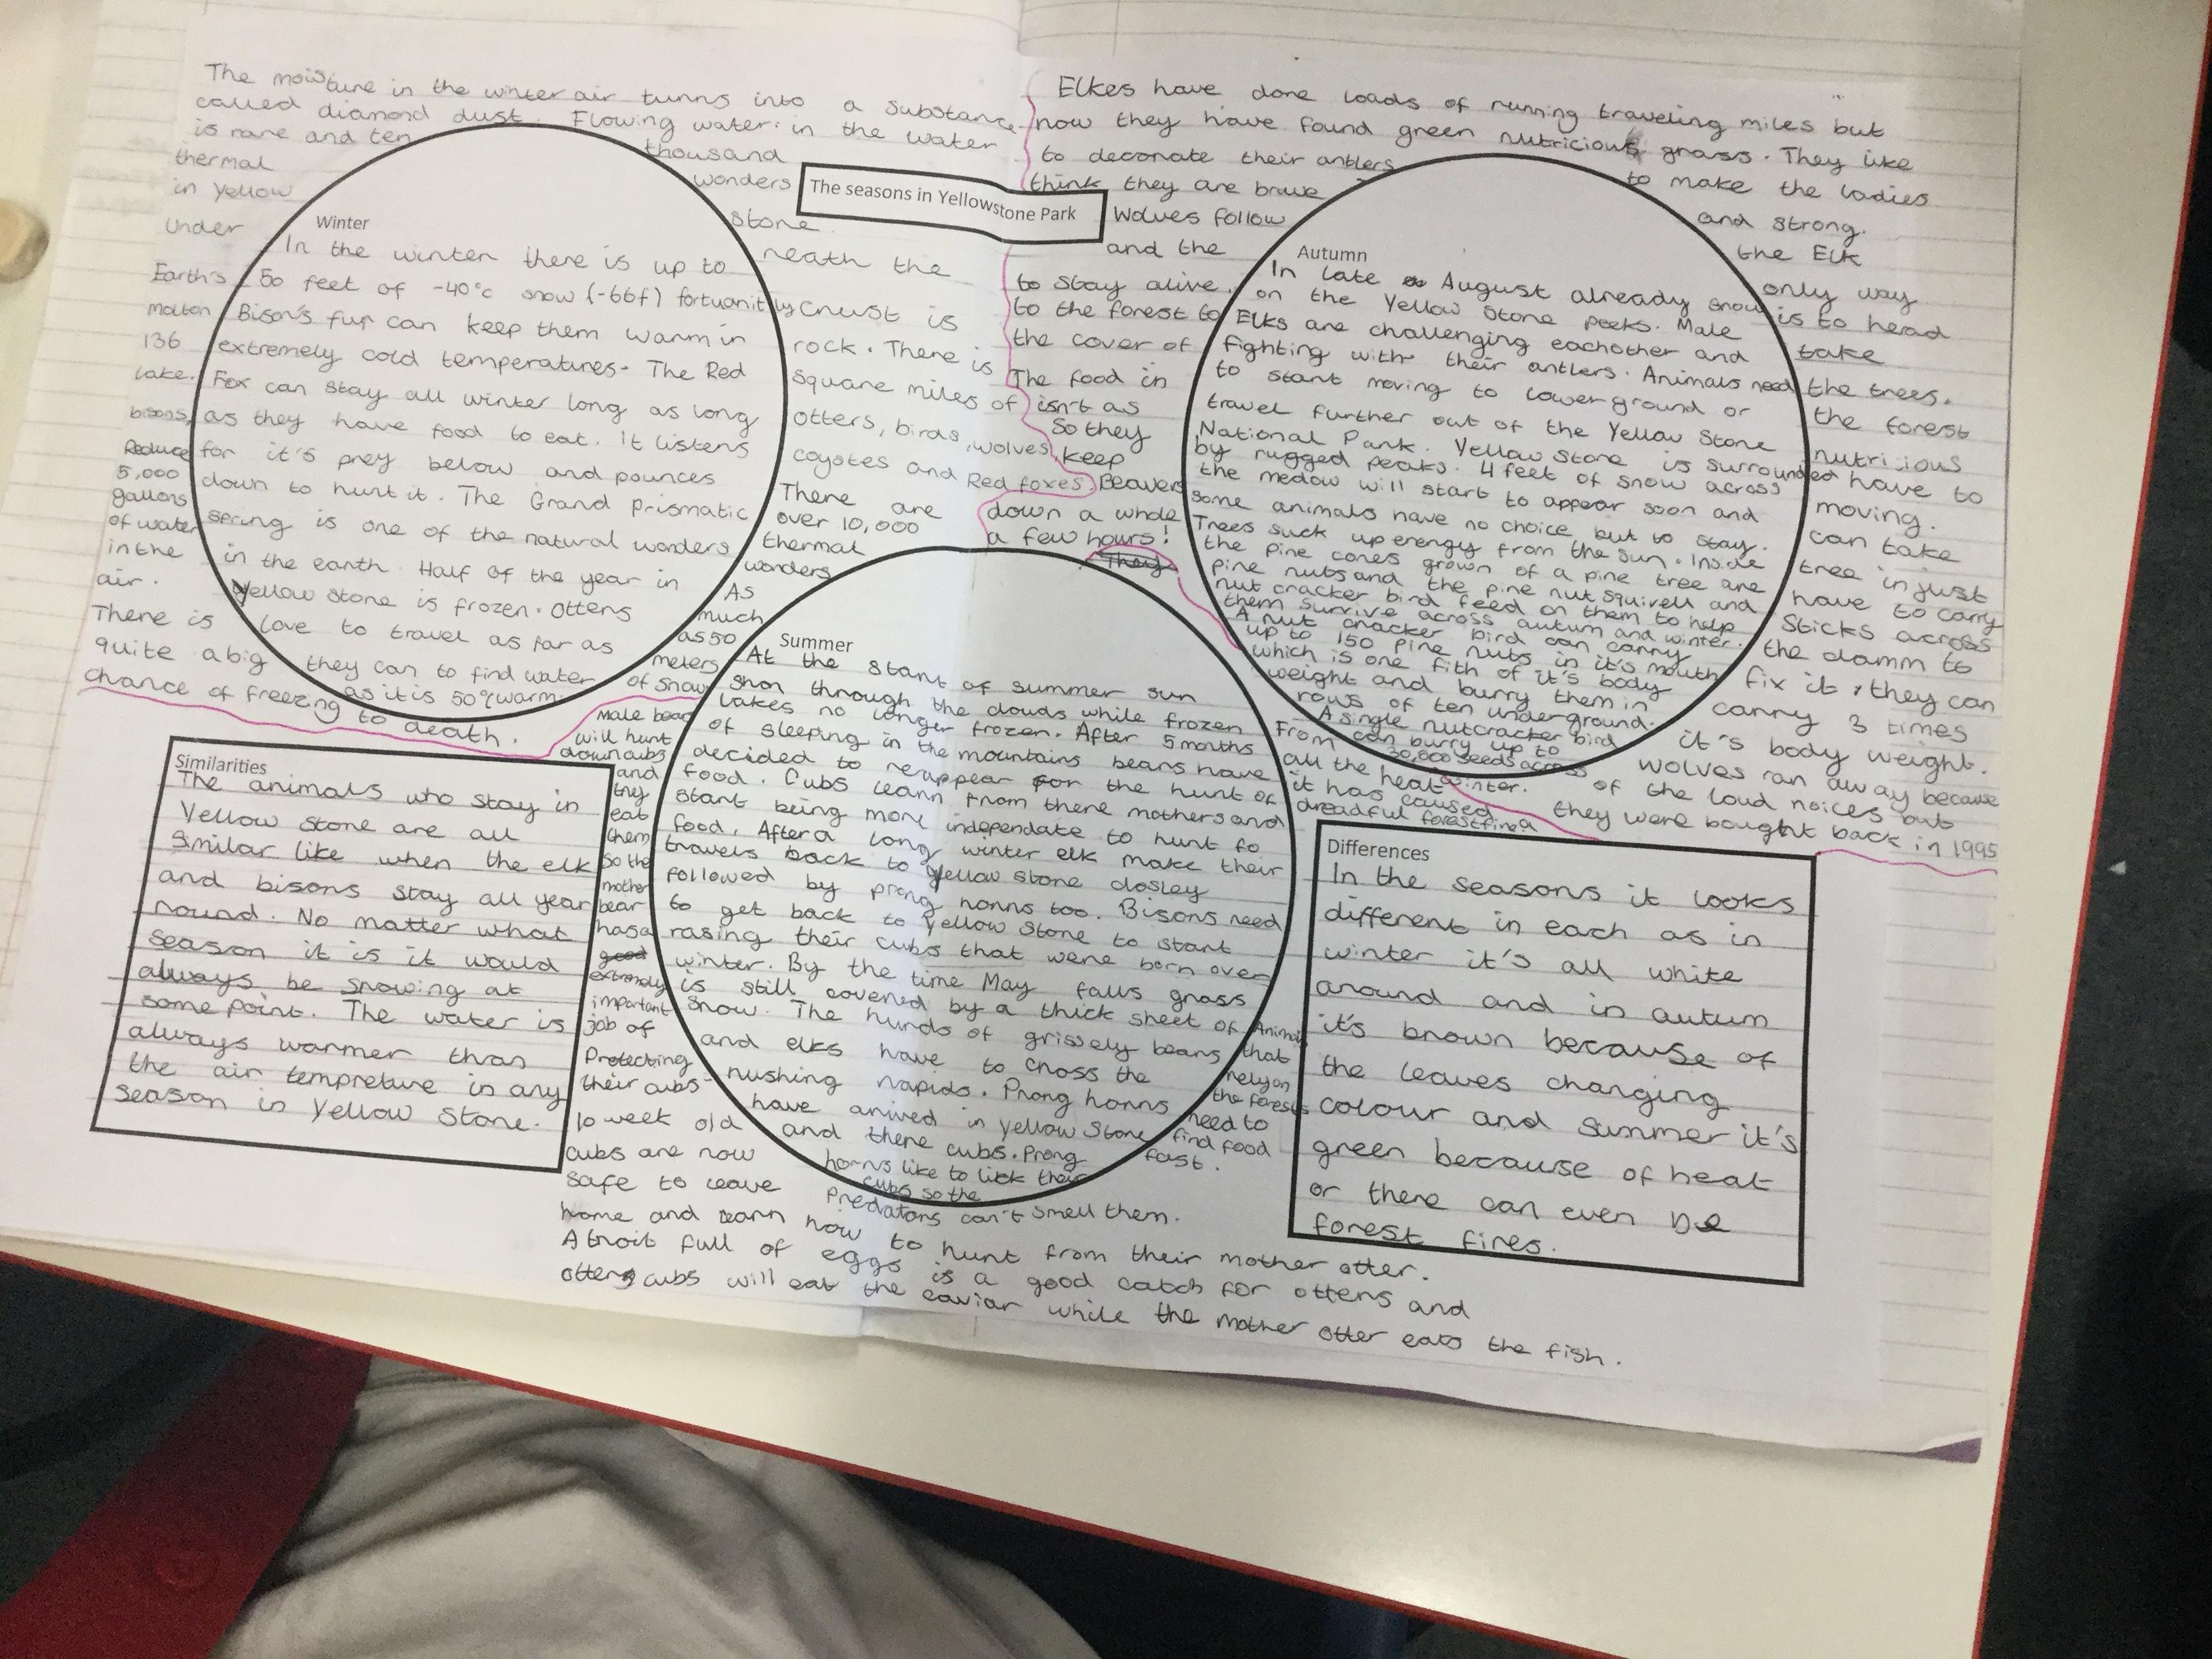 The moisture in the winter air turns into a substance
called diamond dust. Flowing water in the water
is rare and ten thousand
thermal wonders
in Yellow stone
under neath the
Earth's crust is
molton rock. There is
136 square miles of
lake. otters, birds, wolves,
bisons, coyotes and Red foxes.
Reduce There are
5,000 over 10,000
gallons thermal
of water wonders
in the As
air. much
There is as 50
quite a big meters
chance of freezing of snow
to death.
The seasons in Yellowstone Park
Winter
In the winter there is up to
50 feet of -40°c snow (-66f) fortuanitly
Bison's fur can keep them warm in
extremely cold temperatures. The Red
Fox can stay all winter long as long
as they have food to eat. It listens
for it's prey below and pounces
down to hunt it. The Grand Prismatic
spring is one of the natural wonders
in the earth. Half of the year in
Yellow stone is frozen. Otters
love to travel as far as
they can to find water
as it is 50% warm
Elkes have done loads of running traveling miles but
now they have found green nutricious grass. They like
to decorate their antlers to make the ladies
think they are brave and strong.
Wolves follow the Elk
and the only way
to stay alive is to head
to the forest to take
the cover of the trees.
The food in the forest
isn't as nutricious
So they have to
keep moving.
Beavers can take
down a whole tree in just
a few hours! have to carry
They sticks across
the damm to
fix it & they can
carry 3 times
it's body weight.
wolves ran away because
of the loud noices but
they were bought back in 1995
Autumn
In late August already snow
on the Yellow Stone Peeks. Male
Elks are challenging eachother and
fighting with their antlers. Animals need
to start moving to lower ground or
travel further out of the Yellow Stone
National Park. Yellow Stone is surrounded
by rugged peaks. 4 feet of snow across
the medow will start to appear soon and
some animals have no choice but to stay.
Trees suck up energy from the sun. Inside
the pine cones grown of a pine tree are
pine nuts and the pine nut squirell and
nut cracker bird feed on them to help
them survive across autum and winter.
A nut cracker bird can carry
up to 150 pine nuts in it's mouth
which is one fith of it's body
weight and burry them in
rows of ten underground.
A single nutcracker bird
can burry up to
30,000 seeds across
winter.
Summer
At the start of summer sun
shon through the clouds while frozen
lakes no longer frozen. After 5 months
of sleeping in the mountains bears have
decided to reappear for the hunt of
food. Cubs learn from there mothers and
start being more independate to hunt fo
food. After a long winter elk make their
travels back to yellow stone closley
followed by prong horns too. Bisons need
to get back to Yellow Stone to start
rasing their cubs that were born over
winter. By the time May falls grass
is still covered by a thick sheet of
snow. The hurds of grissely bears
and elks have to cross the
rushing rapids. Prong horns
have arived in Yellow Stone
and there cubs. Prong
horns like to lick their
cubs so the
predators can't smell them.
Male bears
will hunt
down cubs
and
they
eat
them
so the
mother
bear
has a
good
extremely
important
job of
Protecting
their cubs
From
all the heat
it has caused
dreadful forestfires
Animals
that
rely on
the forests
need to
find food
fast.
10 week old
cubs are now
safe to leave
home and learn how to hunt from their mother otter.
A trout full of eggs is a good catch for otters and
otters cubs will eat the caviar while the mother otter eats the fish.
Similarities
The animals who stay in
Yellow stone are all
similar like when the elk
and bisons stay all year
round. No matter what
season it is it would
always be snowing at
some point. The water is
always warmer than
the air tempreture in any
season in Yellow Stone.
Differences
In the seasons it looks
different in each as in
winter it's all white
around and in autum
it's brown because of
the leaves changing
colour and summer it's
green because of heat
or there can even be
forest fires.